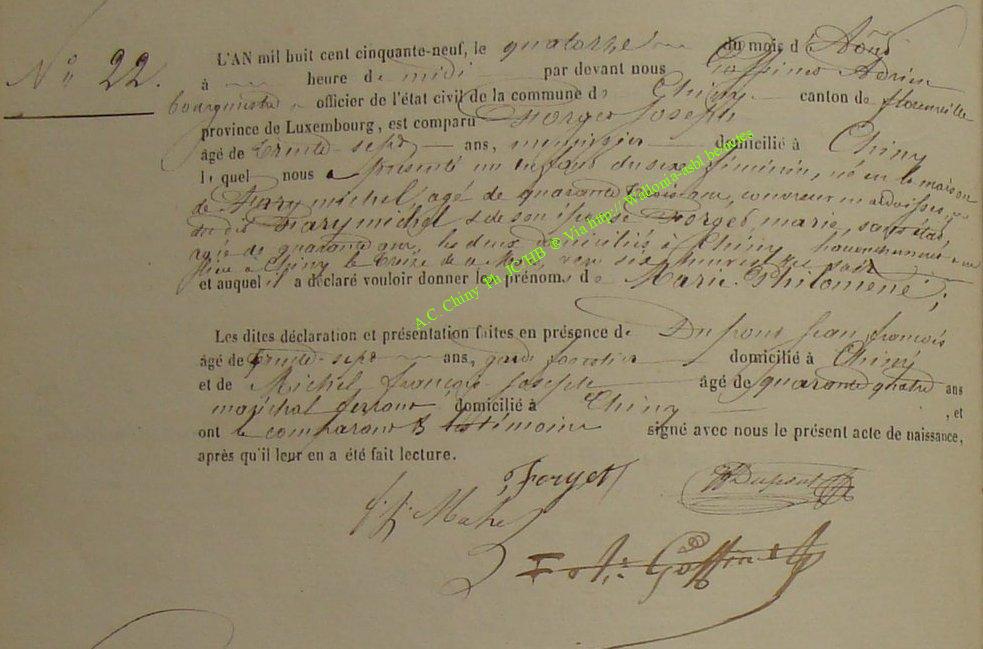 N° 22.
L'AN mil huit cent cinquante-neuf, le quatorze du mois d'Août
à heure de midi par devant nous Goffinet Adrien
bourgmestre officier de l'état civil de la commune de Chiny canton de florenville
province de Luxembourg, est comparu Forget Joseph
âgé de trente-sept ans, menuisier domicilié à Chiny
lequel nous a présenté un enfant du sexe féminin, né en la maison
de Fary michel âgé de quarante trois ans, couvreur en ardoises,
du dit Fary michel & de son épouse Forget marie, sans état,
agée de quarante ans, les deux domiciliés à Chiny
à Chiny le treize de ce mois, vers six heures du soir
et auquel il a déclaré vouloir donner les prénoms de Marie-Philomène;
Les dites déclaration et présentation faites en présence de Dupont jean françois
âgé de trente-sept ans, garde forestier domicilié à Chiny
et de Michel françois Joseph âgé de quarante quatre ans
maréchal ferrant domicilié à Chiny, et
ont le comparant & témoins signé avec nous le présent acte de naissance,
après qu'il leur en a été fait lecture.
Forget
Dupont
Goffinet
A.C. Chiny Ph JC HB ® Via http:// Wallonia-asbl.be/actes